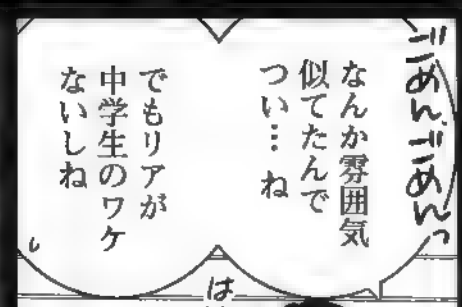 ごめんごめんっ
なんか雰囲気
似てたんで
つい… ね
でもリアが
中学生のワケ
ないしね
は